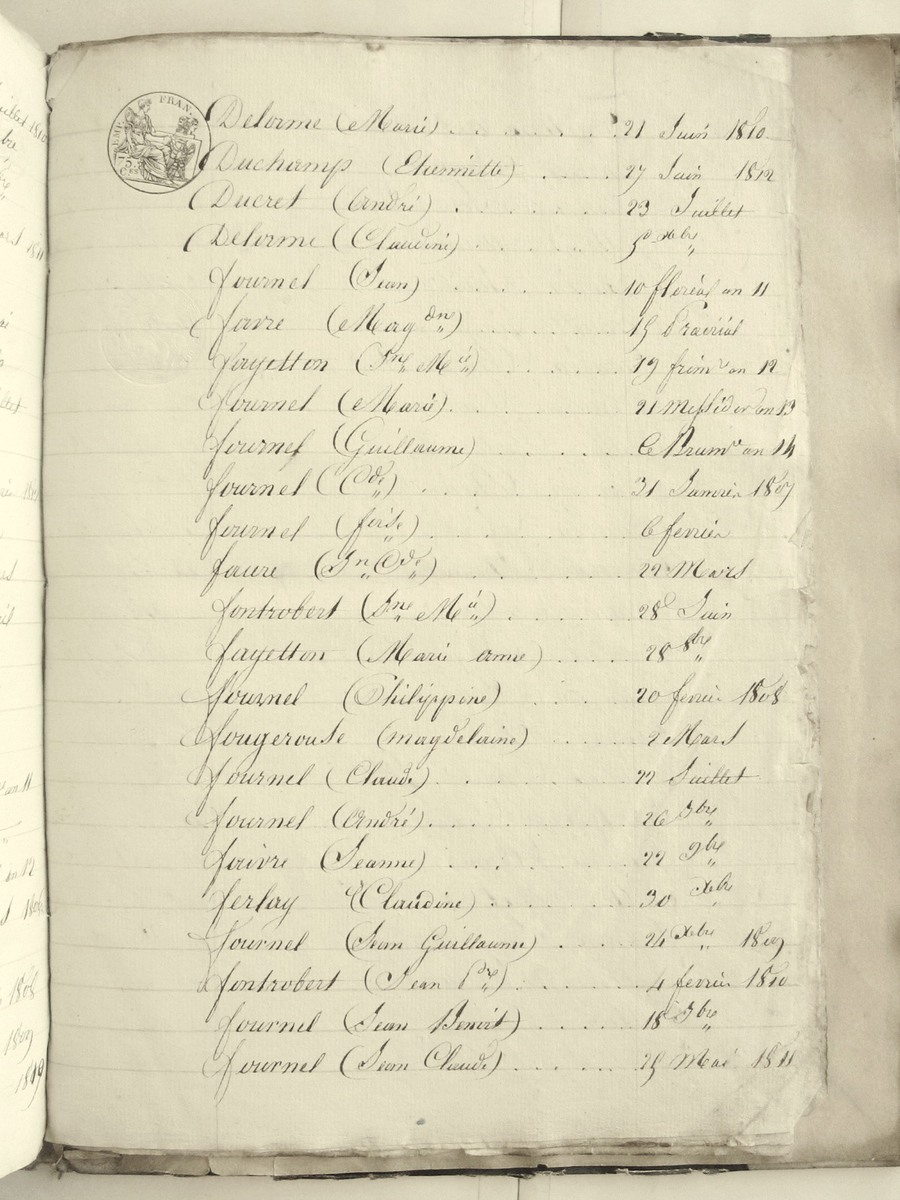 Delorme (Marie) . . . . . . 21 Juin 1810
Duchamp (Etiennette) . . . . 27 Juin 1812
Ducret (André) . . . . . 23 Juillet
Delorme (Claudine) . . . . . xbre
fournel (Jean) . . . . . 10 floréal an 11
faivre (Magdne) . . . . . 15 Prairial
fayetton (Jne Mie) . . . . . 19 frimre an 12
fournel (Marie) . . . . . 21 Messidor an 13
fournel (Guillaume) . . . . 6 Brumre an 14
fournel (Cde) . . . . . 31 Janvier 1807
fournel (  ) . . . . . 6 fevrier
faure (Jn Cde) . . . . . 22 Mars
fontrobert (Jne Mie) . . . . 28 Juin
fayetton (Marie anne) . . . . 28 8bre
fournel (Philippine) . . . . 20 fevrier 1808
fougerouse (magdelaine) . . . . 2 Mars
fournel (Claude) . . . . . 22 Juillet
fournel (André) . . . . . 26 7bre
faivre (Jeanne) . . . . 22 9bre
ferlay (Claudine) . . . . 30 xbre
fournel (Jean Guillaume) . . . 24 xbre 1809
fontrobert (Jean Pre) . . . . 4 fevrier 1810
fournel (Jean Benoit) . . . . 18 7bre
fournel (Jean Claude) . . . . 25 Mai 1811